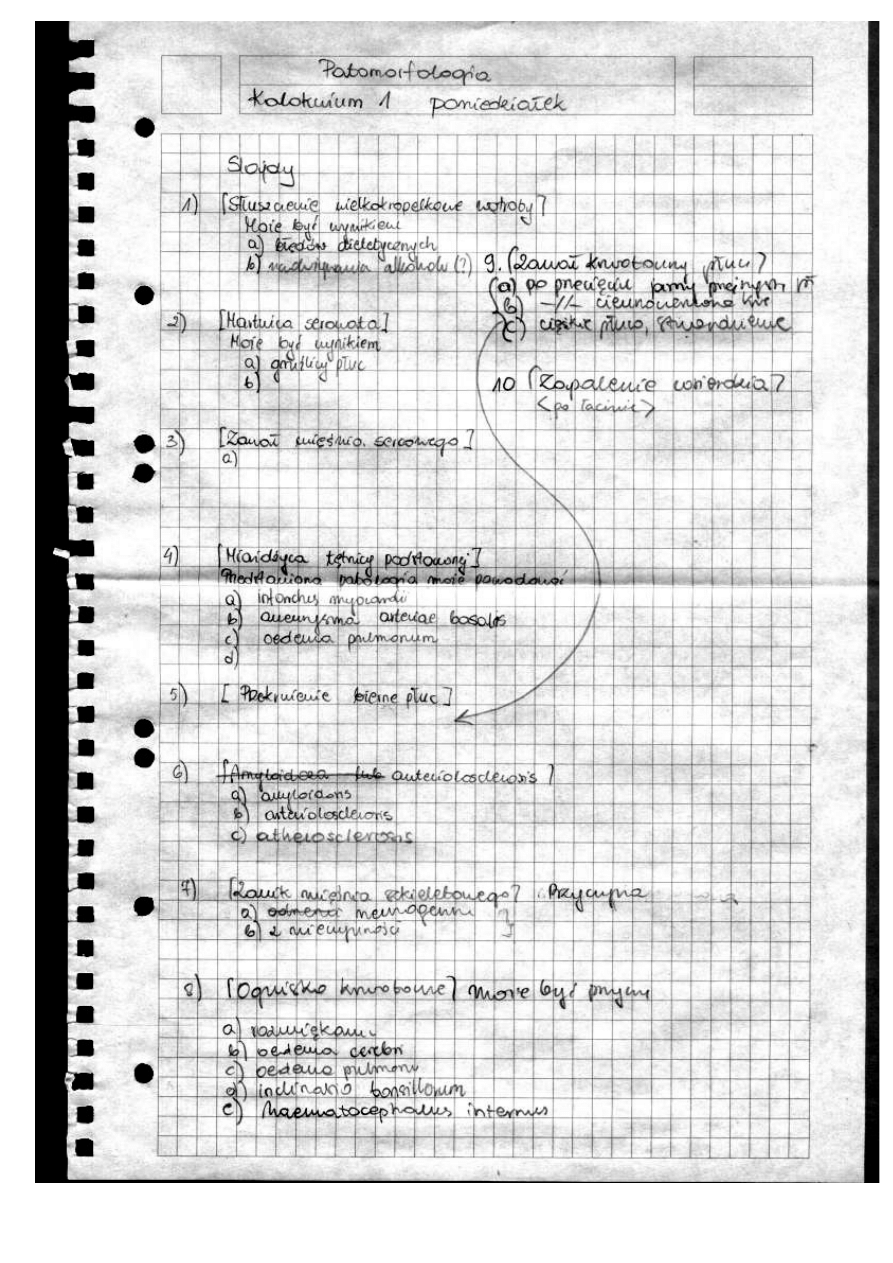 Patomorfologia
Kolokwium 1 poniedziałek
Slajdy
1) [Stłuszczenie wielkokropelkowe wątroby]
Może być wynikiem
a) błędów dietetycznych
b) nadużywania alkoholu (?)
2) [Martwica serowata]
Może być wynikiem
a) gruźlicy płuc
b)
3) [Zawał mięśnia sercowego]
a)
4) [Miażdżyca tętnicy podstawnej]
Przedstawiona patologia może powodować
a) infarctus myocardii
b) aneurysma arteriae basalis
c) oedema pulmonum
d)
5) [Przekrwienie bierne płuc]
6) [Amyloidoza lub arteriolosclerosis]
a) amyloidosis
b) arteriolosclerosis
c) atherosclerosis
7) [Zanik mięśnia szkieletowego] Przyczyna
a) neurogenny
b) z nieczynności
8) [Ognisko krwotoczne] może być przyczy
a)
b) oedema cerebri
c) oedema pulmonu
d) inclinatio tonsillorum
e) haematocephalus internus
9. [Zawał krwotoczny płuc]
a) po przecięciu
b) -//-
c) ciężkie płuco, stwardnienie
10 [Zapalenie wsierdzia]
<po łacinie>